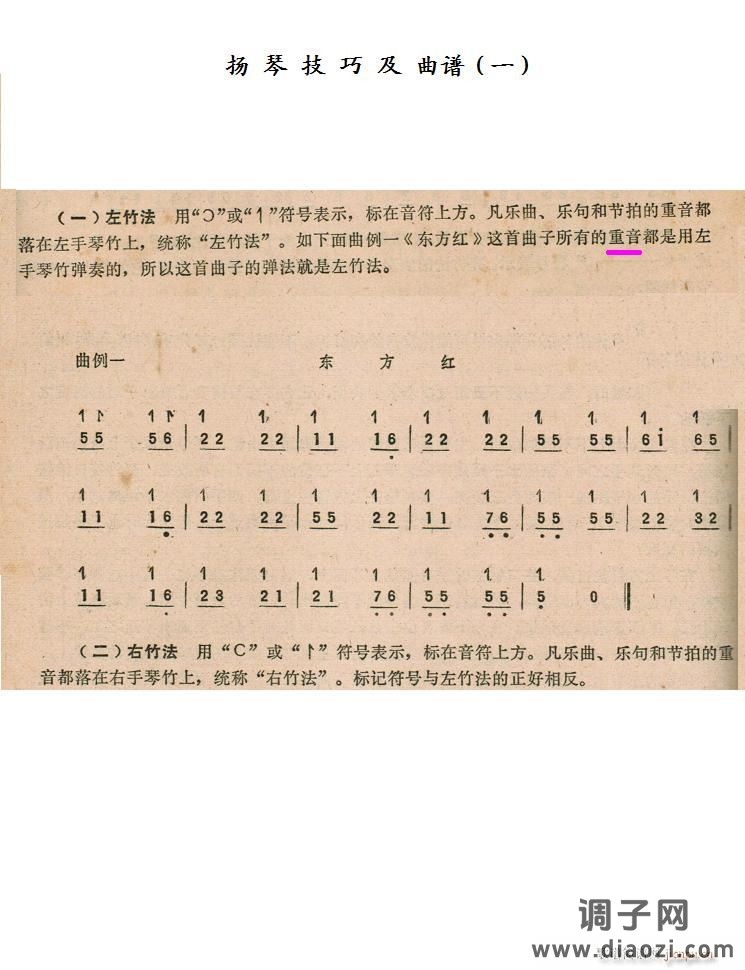 扬 琴 技 巧 及 曲谱(一)
(一)左竹法 用“Ɔ”或“↿”符号表示,标在音符上方。凡乐曲、乐句和节拍的重音都
落在左手琴竹上,统称“左竹法”。如下面曲例一《东方红》这首曲子所有的重音都是用左
手琴竹弹奏的,所以这首曲子的弹法就是左竹法。
曲例一 东 方 红
↿ ↾ ↿ ↾ ↿ ↿ ↿ ↿ ↿ ↿ ↿ ↿ ↿ ↿
55 56 | 22 22 | 11 16̣ | 22 22 | 55 55 | 6i 65 |
↿ ↿ ↿ ↿ ↿ ↿ ↿ ↿ ↿ ↿ ↿ ↿
11 16̣ | 22 22 | 55 22 | 11 7̣6̣ | 5̣5̣ 55 | 22 32 |
↿ ↿ ↿ ↿ ↿ ↿ ↿ ↿ ↿
11 16̣ | 23 21 | 21 7̣6̣ | 5̣5̣ 5̣5̣ | 5̣ 0 ‖
(二)右竹法 用“C”或“↾”符号表示,标在音符上方。凡乐曲、乐句和节拍的重
音都落在右手琴竹上,统称“右竹法”。标记符号与左竹法的正好相反。
调子网
www.diaozi.com